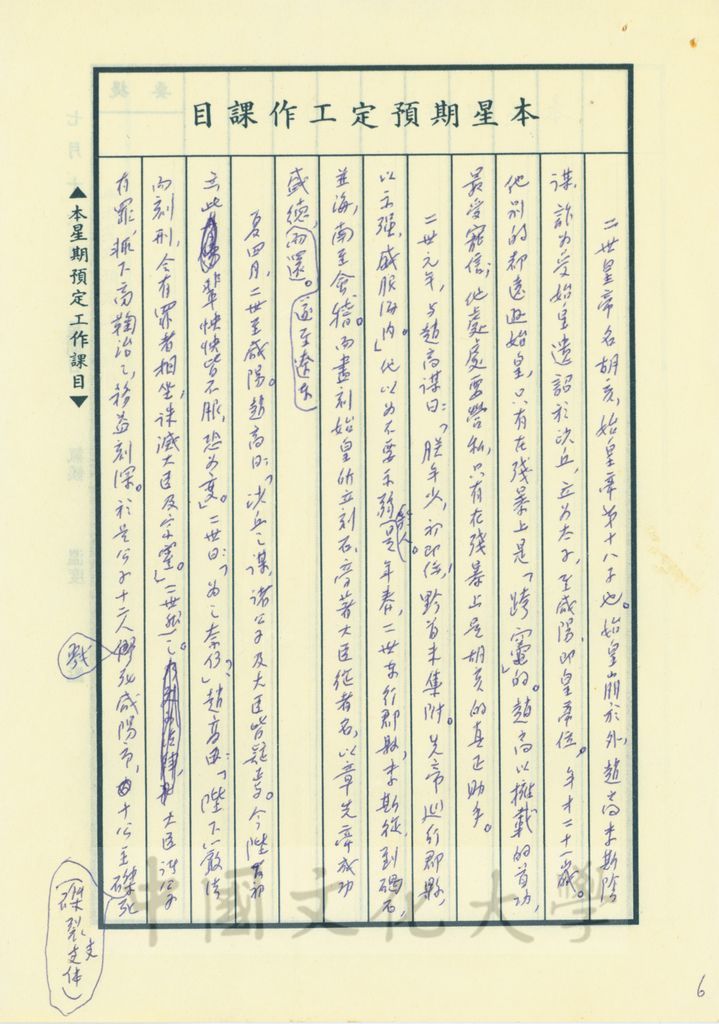 本星期預定工作課目
二世皇帝名胡亥,始皇帝第十八子也。始皇崩於外,趙高李斯陰
謀,詐為受始皇遺詔於沙丘,立為太子,至咸陽,即皇帝位。年才二十一歲。
他別的都遠遜始皇,只有在殘暴上是「跨竈」的。趙高以擁戴的首功,
最受寵信;他處處要營私,只有在殘暴上是胡亥的真正助手。
二世元年,與趙高謀曰:「朕年少,初即位,黔首未集附。先帝巡行郡縣,
以示強,威服海內。」他以為不要示弱於人。是年春,二世東行郡縣,李斯從,到碣石,
並海,南至會稽。而盡刻始皇所立刻石,旁著大臣從者名,以章先帝成功
盛德,而還。遂至遼東
夏四月,二世至咸陽。趙高曰:「沙丘之謀,諸公子及大臣皆疑焉。今陛下初
立此輩怏怏皆不服,恐為變。」二世曰:「為之奈何?」趙高曰:「陛下嚴法
而刻刑,令有罪者相坐,誅滅大臣及宗室。」二世然之。大臣諸公子
有罪,輒下高鞠治之,務益刻深。於是公子十二人僇死咸陽市,十公主磔死
戮
(磔裂支体)
支
▲本星期預定工作課目▼
中國文化大學
6